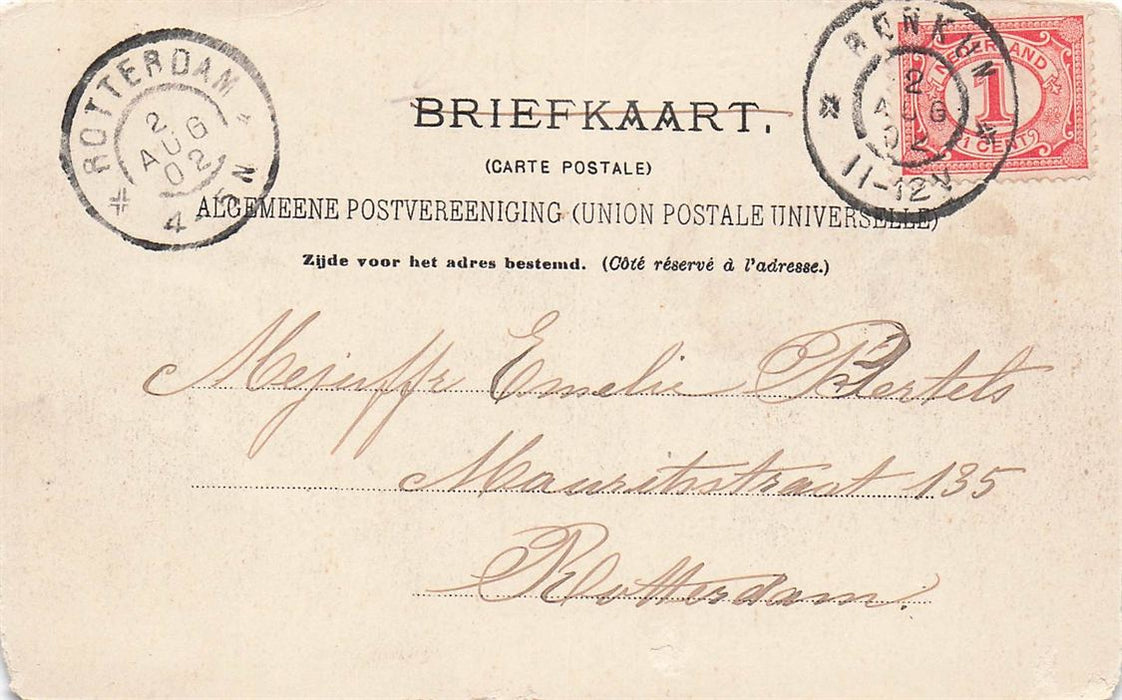 ROTTERDAM
2
AUG
02
4-5N
RENKUM
2
AUG
02
11-12V
NEDERLAND
1
1 CENT
BRIEFKAART.
(CARTE POSTALE)
ALGEMEENE POSTVEREENIGING (UNION POSTALE UNIVERSELLE)
Zijde voor het adres bestemd. (Côté réservé à l'adresse.)
Mejuffr Emelie Bertels
Mauritsstraat 135
Rotterdam.